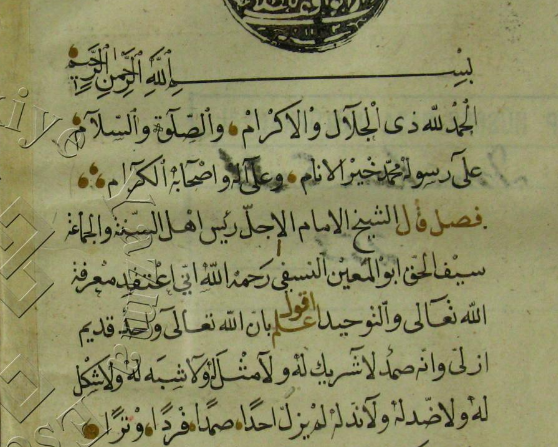 بسم الله الرحمن الرحيم
الحمد لله ذى الجلال والاكرام والصلوة والسلام
على رسوله محمد خير الانام وعلى آله واصحابه الكرام
فصل قال الشيخ الامام الاجل رئيس اهل السنة والجماعة
سيف الحق ابو المعين النسفى رحمه الله انى اعتقد معرفة
الله تعالى والتوحيد اقول اعلم بان الله تعالى واحد قديم
ازلى وانه صمد لا شريك له ولا مثل له ولا شبه له ولا شكل
له ولا ضد له ولا ند له لم يزل احدا صمدا فردا وترا